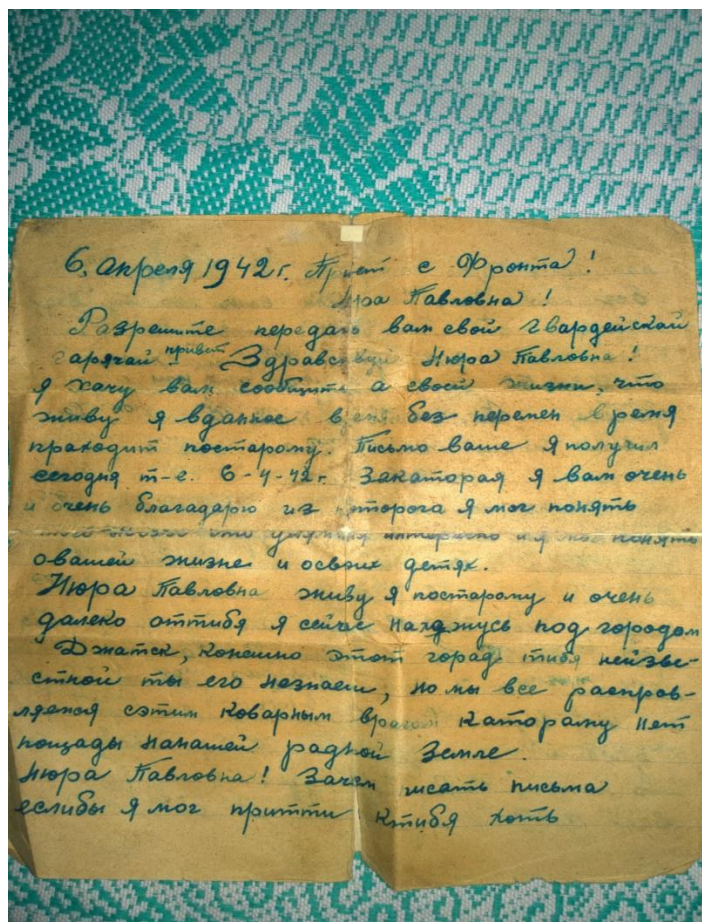 6, апреля 1942 г. Привет с Фронта!
Нюра Павловна!
Разрешите передать вам свой Гвардейской
гарячай привет Здравствуй Нюра Павловна!
я хачу вам сообщить а своей жизни, что
живу я вданное время без перемен время
праходит постарому. Письмо ваше я получил
сегодня т-е. 6-4-42 г. Закаторая я вам очень
и очень благадарю из которога я мог понять
интересно и я мог понять
овашей жизне и освоих детях.
Нюра Павловна живу я постарому и очень
далеко оттибя я сейчас нахджусь под городом
Джатск, конешно этот город тибя неизве-
стной ты его незнаеш, но мы все расправ-
ляемся сэтим коварным врагом каторому нет
пощады нанашей радной Земле.
Нюра Павловна! Зачем писать письма
еслибы я мог притти ктибя хоть